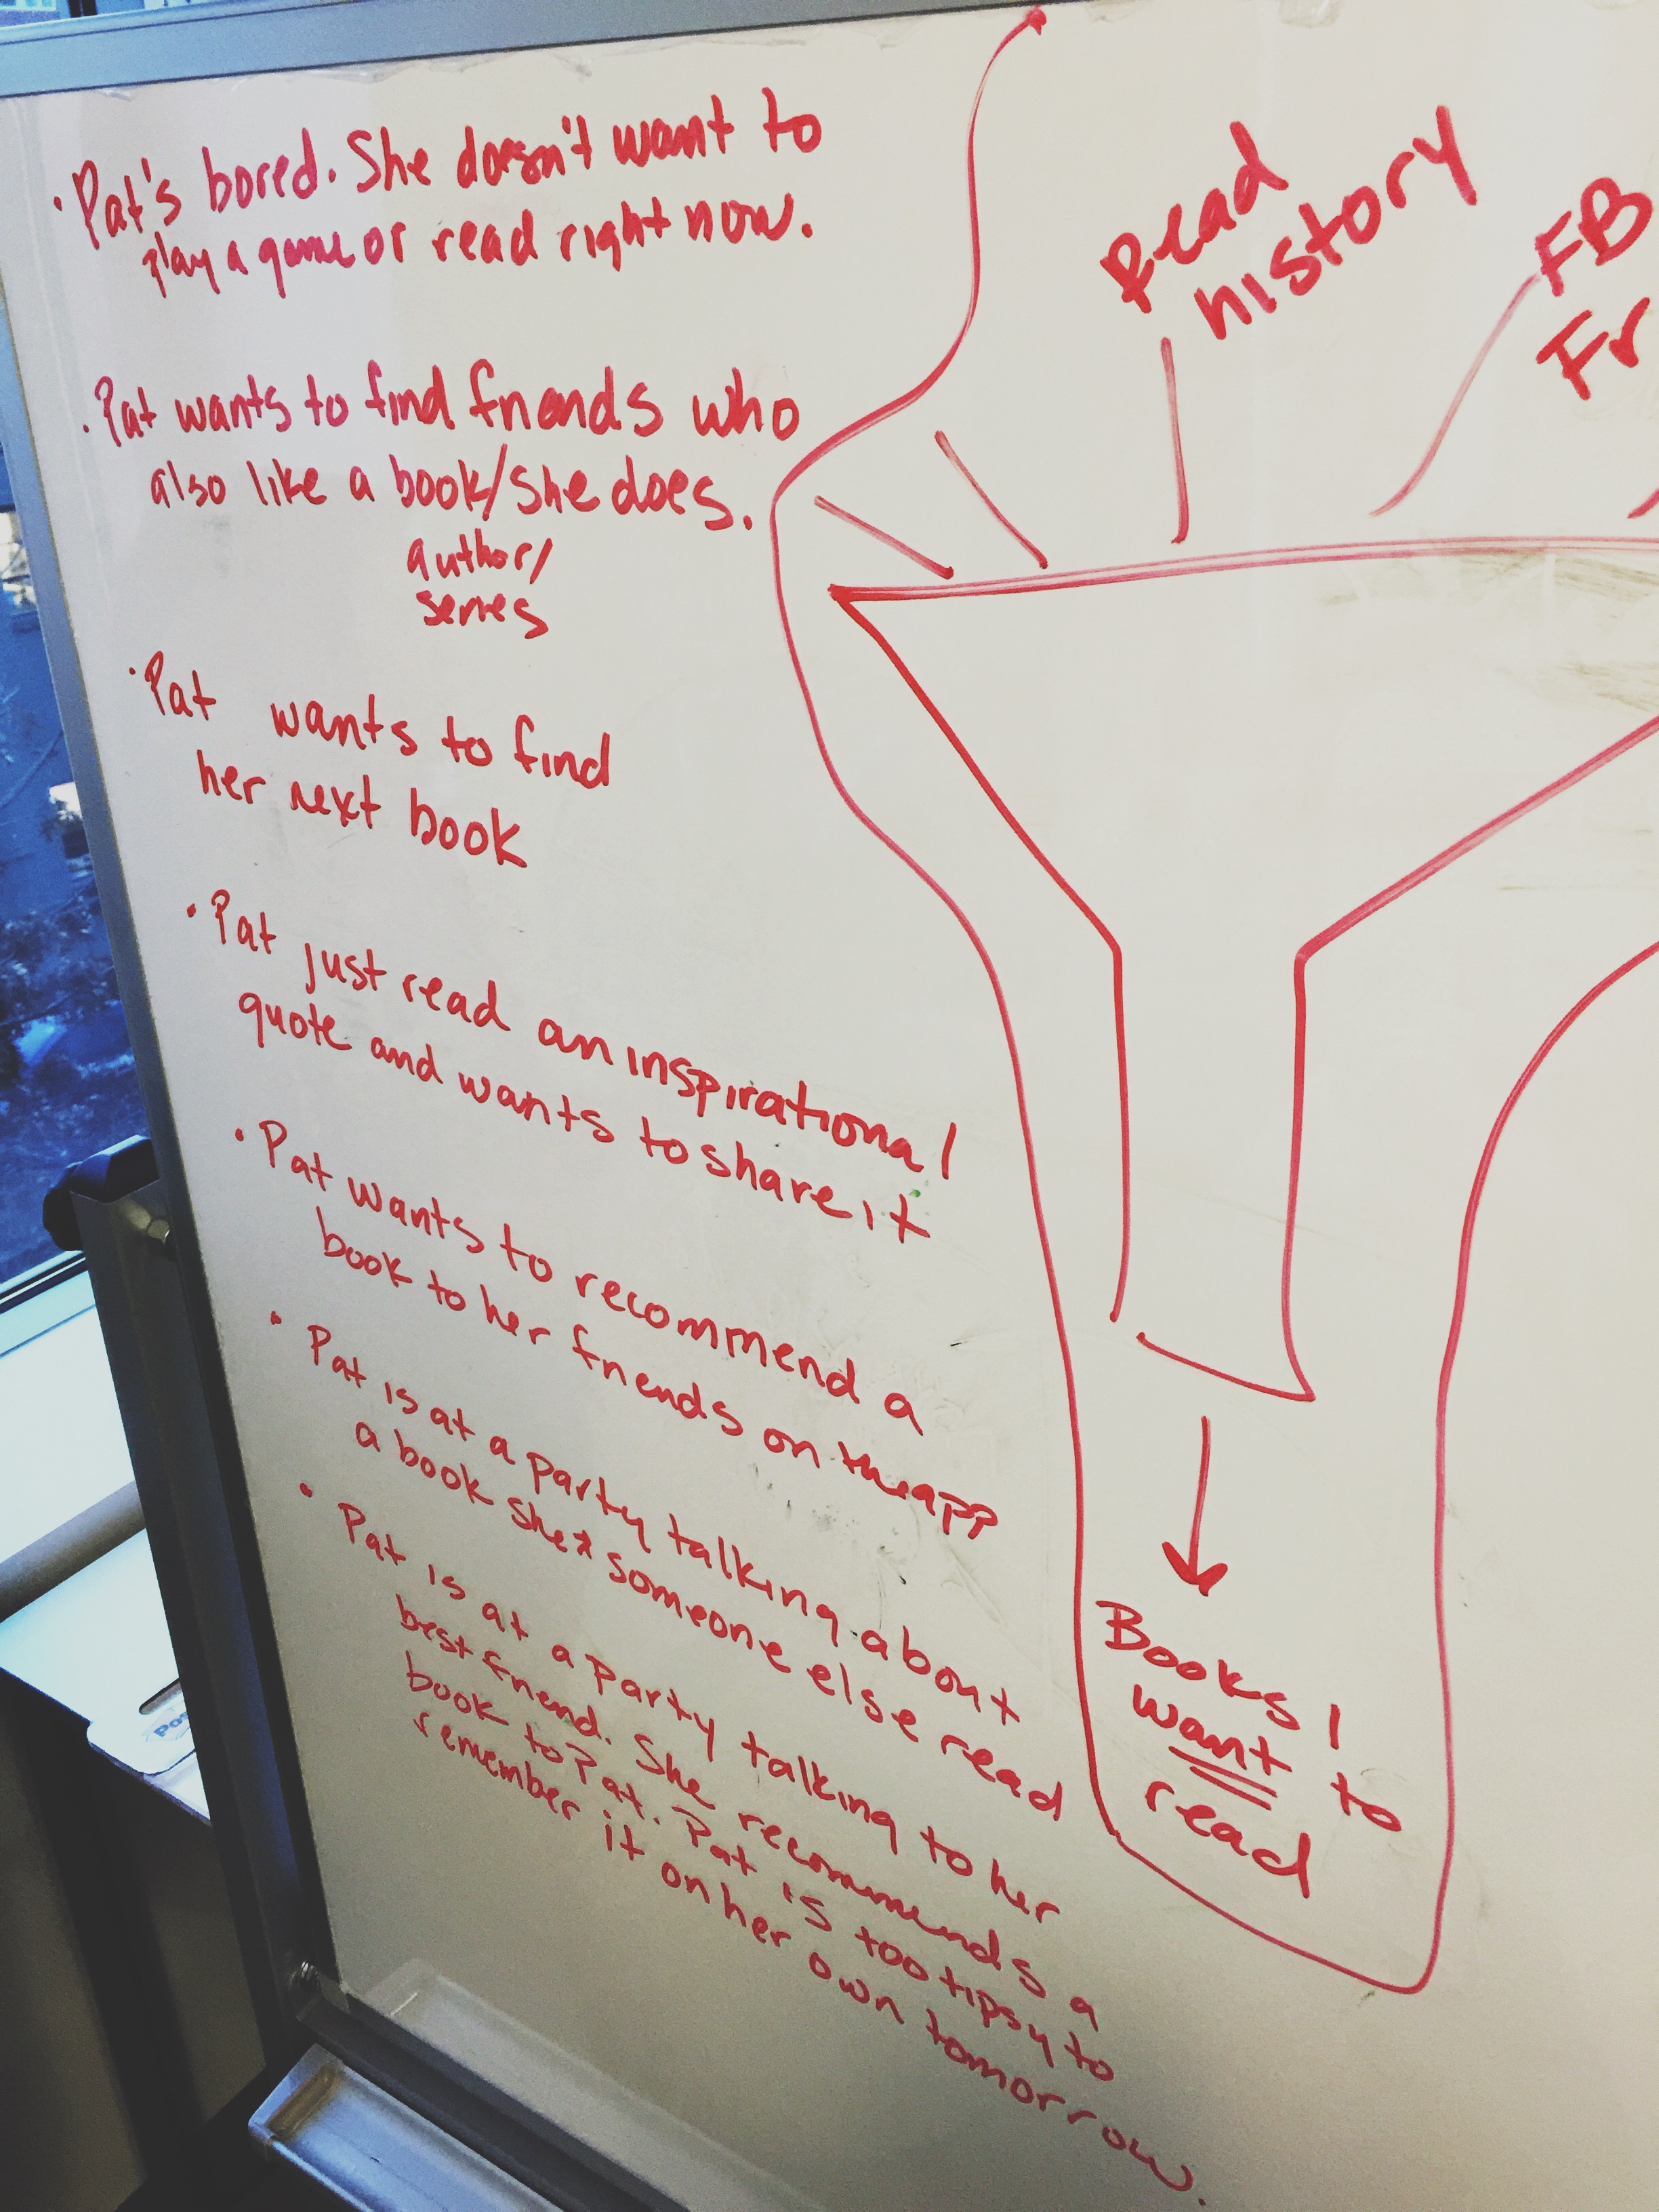 · Pat's bored. She doesn't want to
play a game or read right now.
· Pat wants to find friends who
also like a book/she does.
author/
series
· Pat wants to find
her next book
· Pat just read an inspirational
quote and wants to share it
· Pat wants to recommend a
book to her friends on the app
· Pat is at a party talking about
a book she & someone else read
· Pat is at a party talking to her
best friend. She recommends a
book to Pat. Pat is too tipsy to
remember it on her own tomorrow.
Read
history
FB
Fr
Books I
want to
read